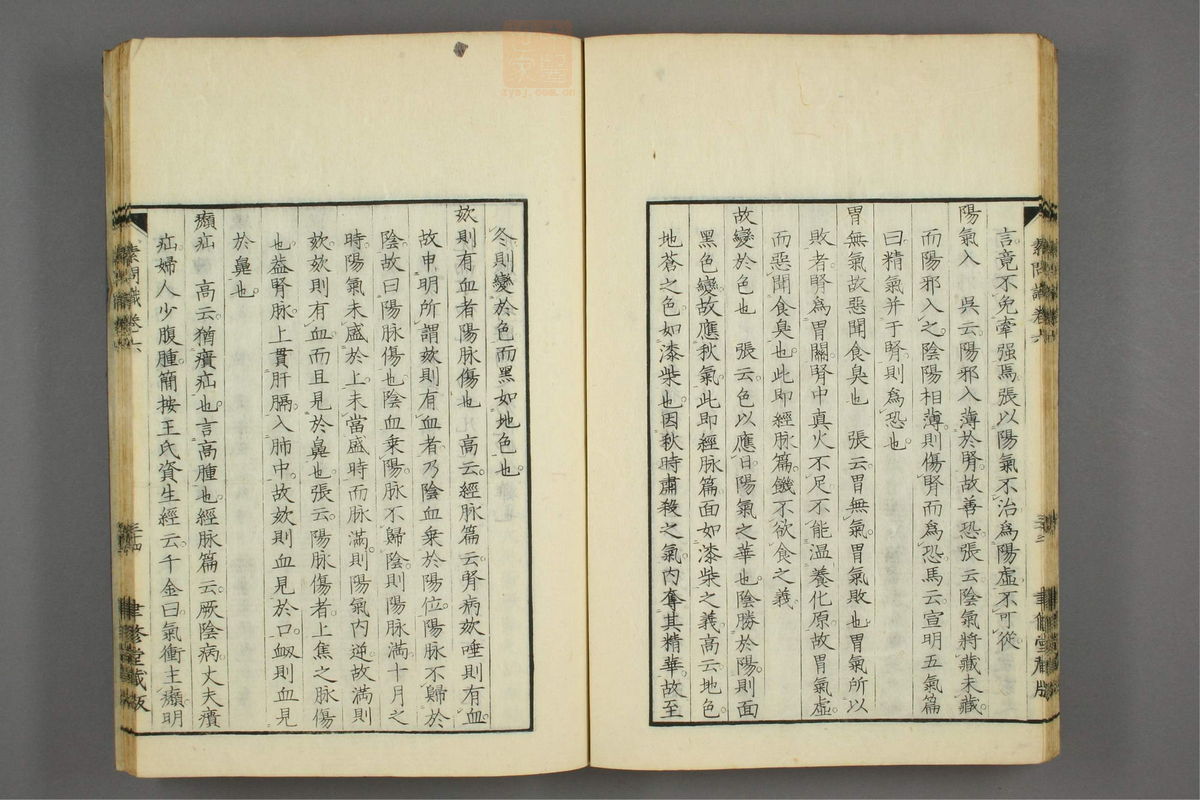 言竟不免牽强馬張以陽氣不治爲陽虛不可從
陽氣入　吳云陽邪入薄於腎故善恐張云陰氣將藏未藏
而陽邪入之陰陽相薄則傷腎而爲恐馬云宣明五氣篇
曰精氣并于腎則爲恐也
胃無氣故惡聞食臭也　張云胃無氣胃氣敗也胃氣所以
敗者腎爲胃關腎中真火不足不能温養化原故胃氣虛
而惡聞食臭也此即經脉篇饑不欲食之義
故變於色也　張云色以應日陽氣之華也陰勝於陽則面
黑色變故應秋氣此即經脉篇面如漆柴之義高云地色
地蒼之色如漆柴也因秋時肅殺之氣内奪其精華故至
冬則變於色而黑如地色也
欬則有血者陽脉傷也　高云經脉篇云腎病欬唾則有血
故申明所謂欬則有血者乃陰血乗於陽位陽脉不歸於
陰故曰陽脉傷也陰血乗陽脉不歸陰則陽脉滿十月之
時陽氣未盛於上未當盛時而脉滿則陽氣内逆故滿則
欬欬則有血而且見於鼻也張云陽脉傷者上焦之脉傷
也葢腎脉上貫肝膈入肺中故欬則血見於口衂則血見
於鼻也
㿗疝　高云猶㿉疝也言高腫也經脉篇云厥陰病丈夫㿉
疝婦人少腹腫簡按王氏資生經云千金曰氣衝主㿗明
素問識卷六
三十四
聿修堂藏版